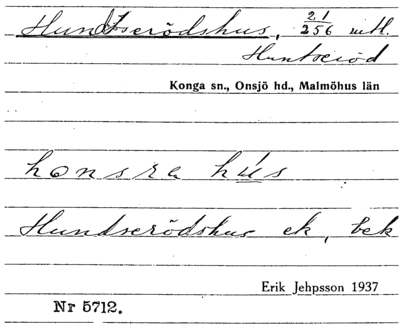 Hundserödshus, 21/256 mtl.
Huntseröd
Konga sn., Onsjö hd., Malmöhus län
honsra hús
Hundserödshus ek, bek
Erik Jehpsson 1937
Nr 5712.